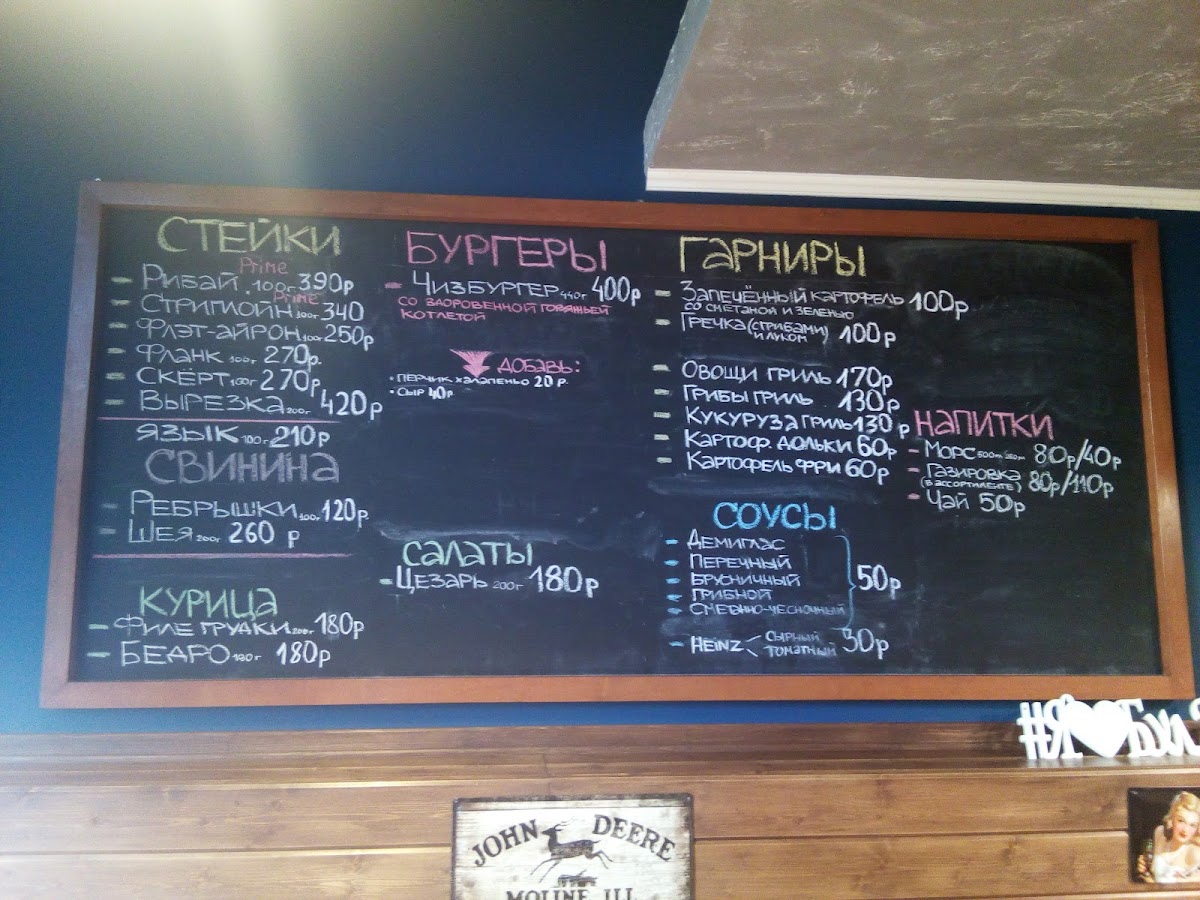 СТЕЙКИ
Prime
- Рибай 100г 390р
Prime
- Стриплойн 100г 340
- Флэт-айрон 100г 250р
- Фланк 100г 270р.
- Скёрт 100г 270р
- Вырезка 200г 420р
язык 100г 210р
СВИНИНА
- Ребрышки 100г 120р.
- Шея 200г 260 р
КУРИЦА
- Филе грудки 200г 180р
- Бедро 190г 180р
БУРГЕРЫ
- Чизбургер 440г 400р
со здоровенной говяжьей
котлетой
добавь:
• перчик халапеньо 20 р.
• Сыр 40р
САЛАТЫ
- Цезарь 200г 180р
ГАРНИРЫ
- Запечённый картофель 100р
со сметаной и зеленью
- Гречка (с грибами и луком) 100р
- Овощи гриль 170р
- Грибы гриль 130р
- Кукуруза гриль 130р
- Картоф. дольки 60р
- Картофель фри 60р
СОУСЫ
- Демиглас
- Перечный
- Брусничный 50р
- Грибной
- Сметанно-чесночный
- Heinz < сырный 30р
томатный
НАПИТКИ
- Морс 500мл 250мл 80р/40р
- Газировка 80р/110р
(в ассортименте)
- Чай 50р
#Я Бул
JOHN DEERE
MOLINE ILL